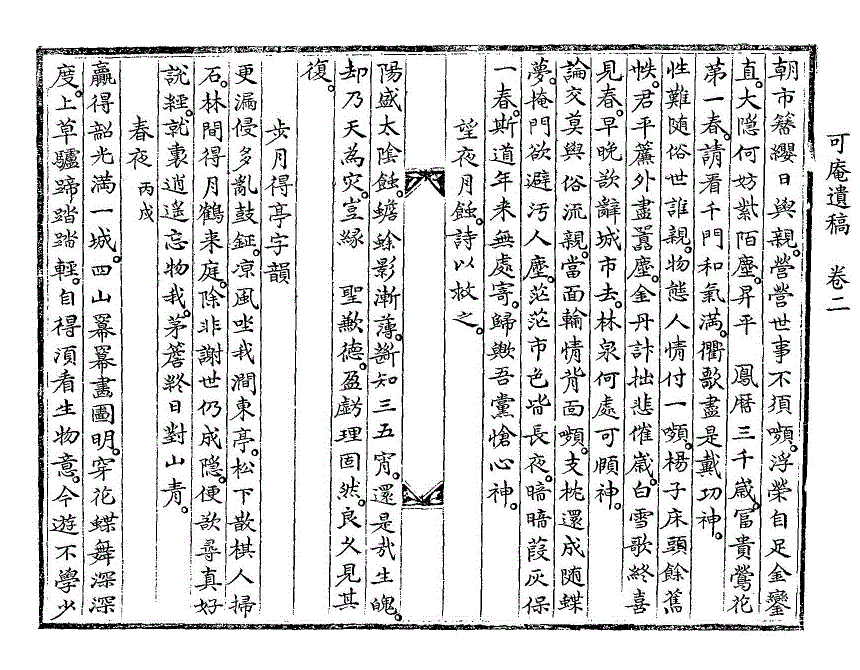 可庵遺稿　卷二
朝市簪纓日與親營營世事不須嚬浮榮自足金鑾
直大隐何妨紫陌塵昇平　鳳曆三千歲冨貴鶯花
第一春請看千門和氣滿衢歌盡是戴功神
性難随俗世誰親物態人情付一嚬楊子床頭餘舊
帙君平簾外盡囂塵金丹計拙悲催歲白雪歌終喜
見春早晚欲辭城市去林泉何處可頤神
論交莫與俗流親當面輸情背面嚬支枕還成随蝶
夢掩門欲避汚人塵茫茫市色皆長夜暗暗葭灰保
一春斯道年来無處寄歸歟吾黨愴心神
望夜月蝕詩以救之
陽盛太陰蝕蟾蜍影漸薄斷知三五宵還是哉生魄
却乃天為灾豈緣　聖歉德盈虧理固然良久見其
復
步月得亭字韻
更漏侵多亂鼓鉦凉風坐我澗東亭松下散棋人掃
石林間得月鶴来庭除非謝世仍成隐便欲尋真好
說經就裏逍遥忘物我茅簷終日對山青
春夜　丙戌
贏得韶光滿一城四山冪冪畫圖明穿花蝶舞深深
度上草驢蹄踏踏輕自得湏看生物意今遊不學少